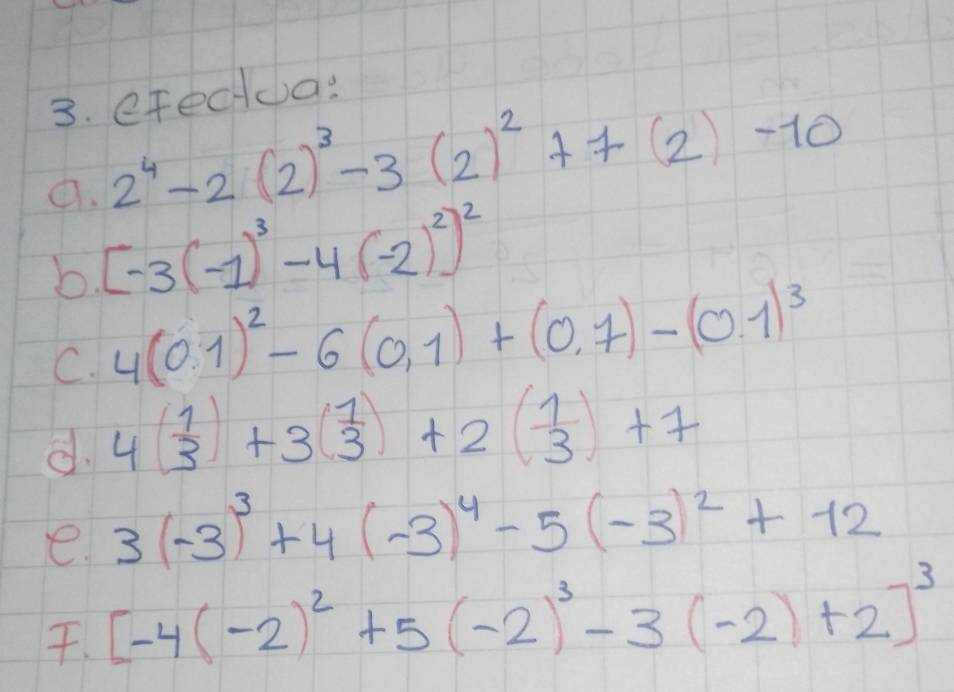 3. efectua:
a. 2⁴ - 2 (2)³ - 3 (2)² + 7 (2) - 10
b. [-3(-1)³ - 4(-2)²]²
c. 4(0,1)² - 6(0,1) + (0,1) - (0.1)³
d. 4(1/3) + 3(1/3) + 2(1/3) + 7
e. 3(-3)³ + 4(-3)⁴ - 5(-3)² + 12
f. [-4(-2)² + 5(-2)³ - 3(-2) + 2]³